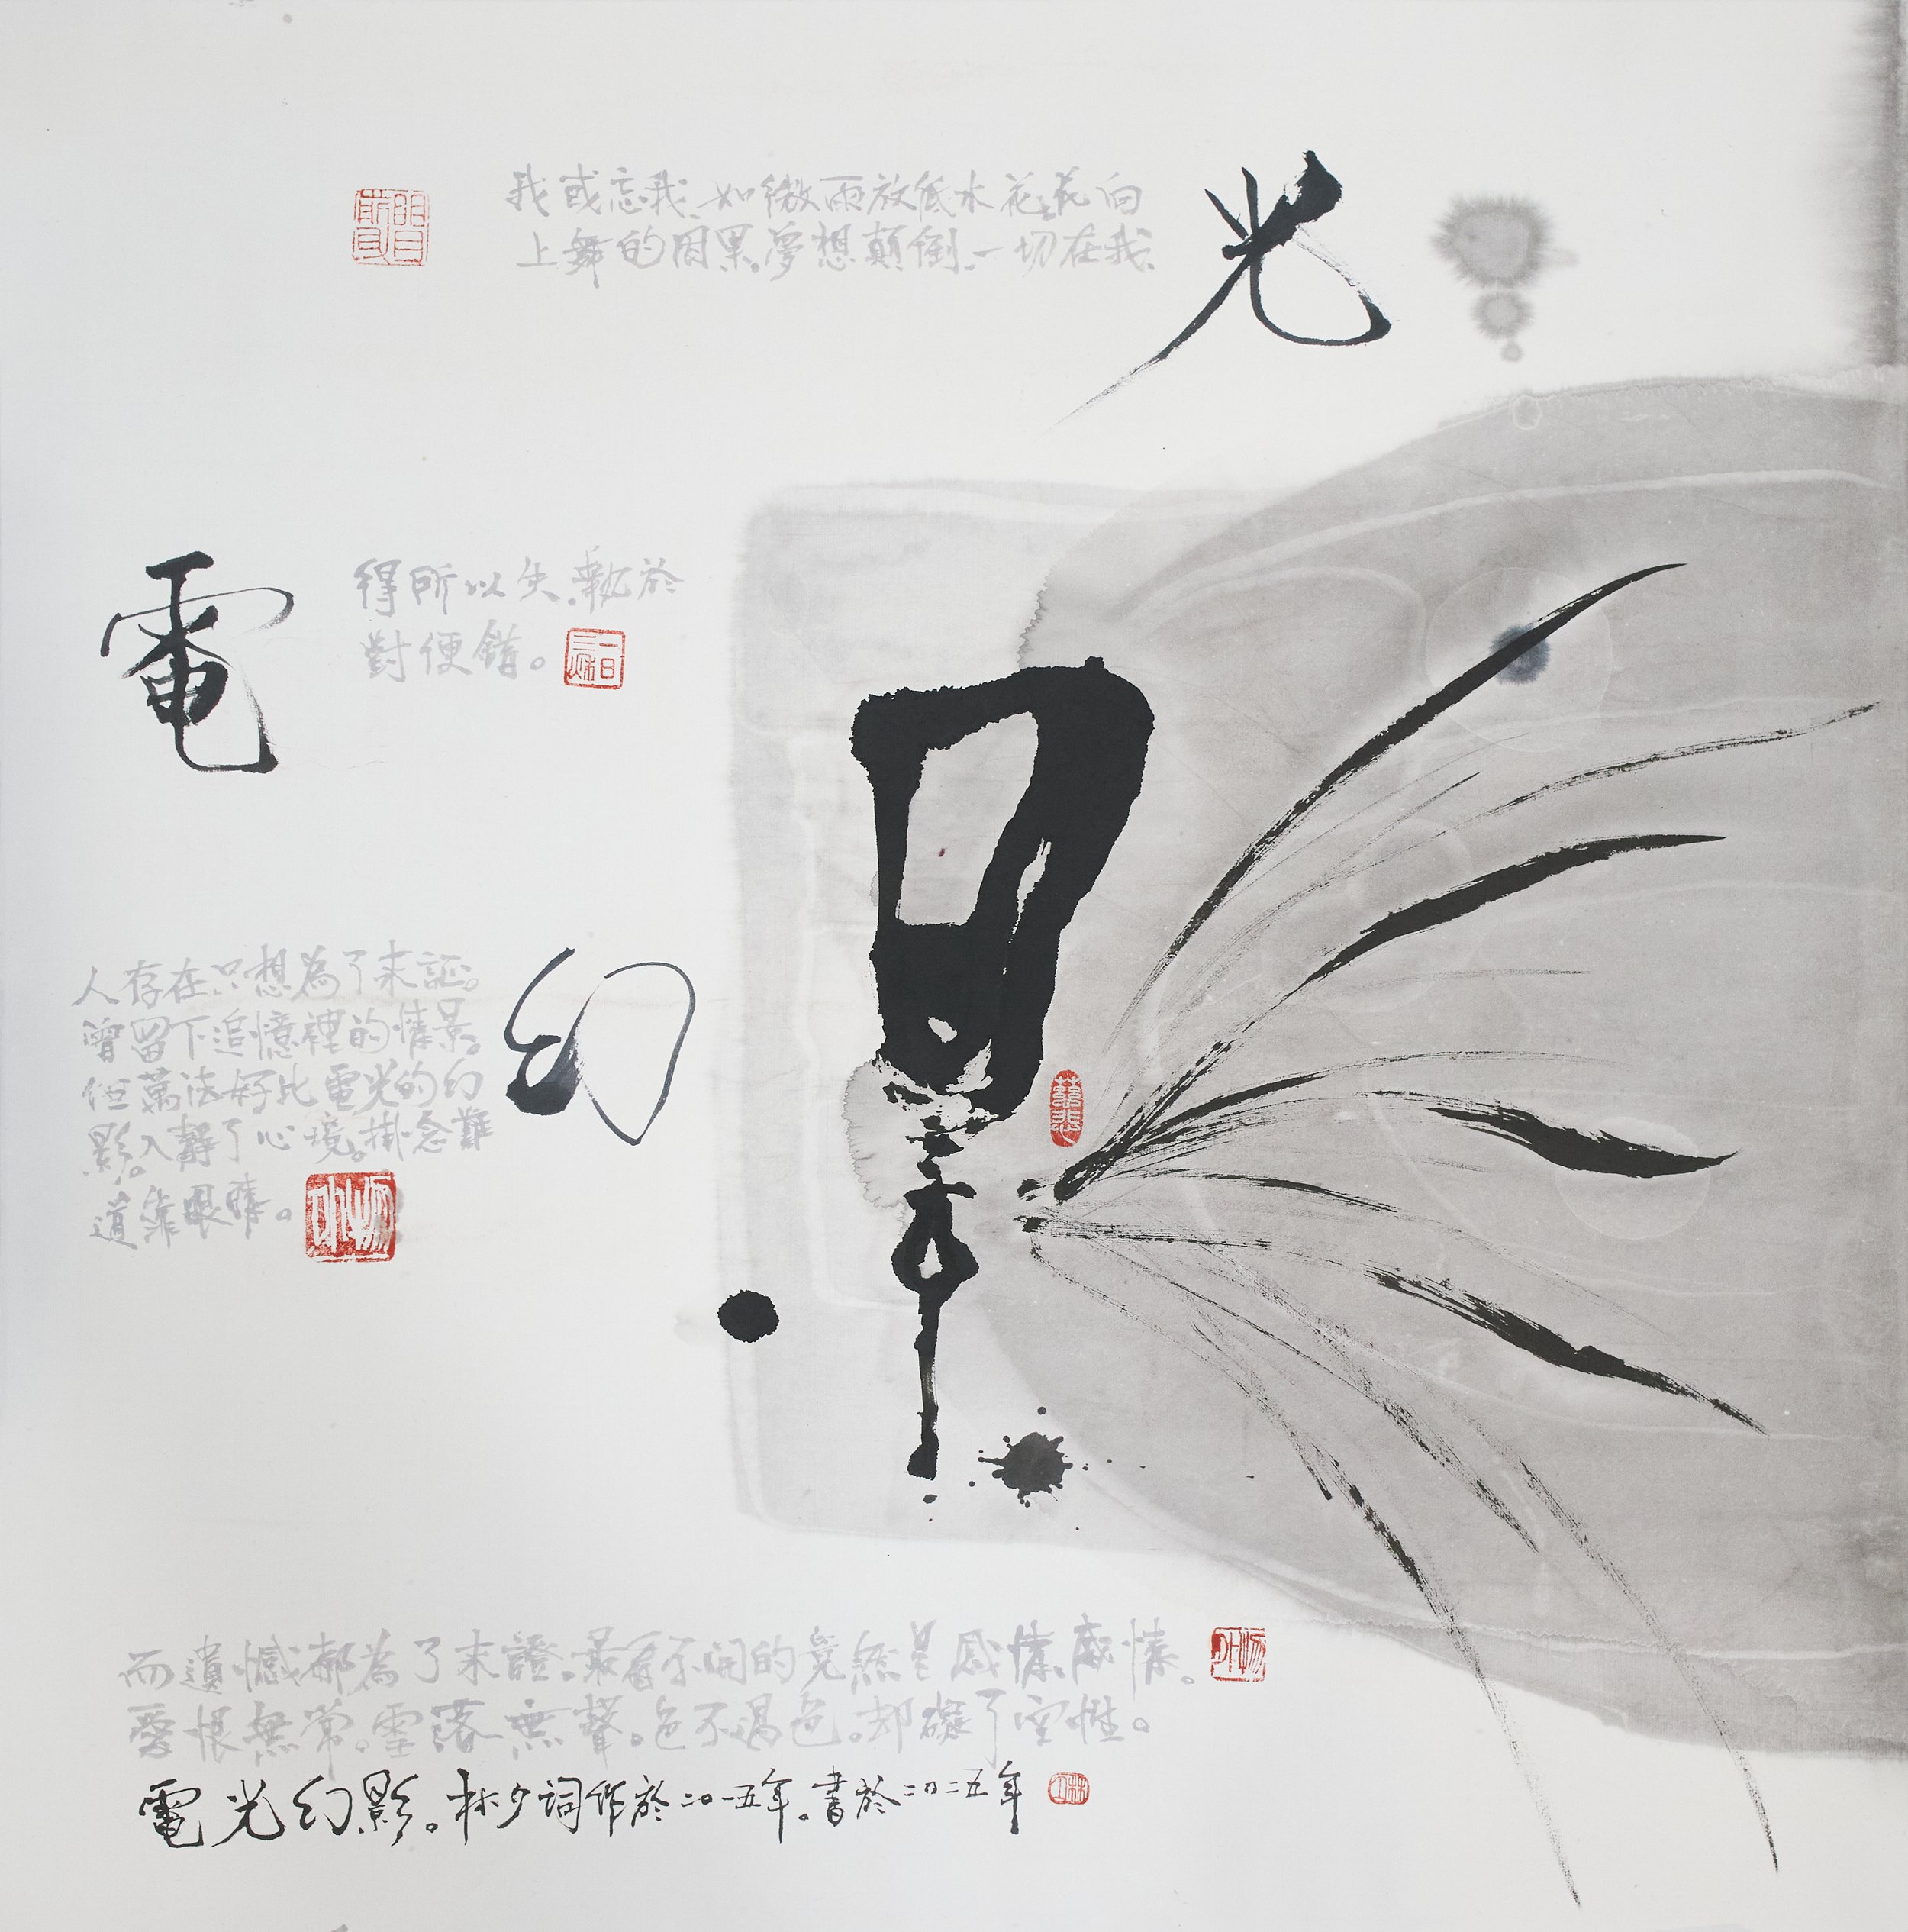 光
我或忘我、如微雨放低水花。花向
上舞的因果。夢想顛倒、一切在我、
電
得所以失。執於
對便錯。
幻
影
人存在只想為了未証。
曾留下追憶裡的情景。
但萬法好比電光的幻
影。入靜了心境。掛念難
道靠眼睛。
慈悲
而遺憾都為了未證。最看不開的竟然是感情、感情。
愛恨無常。零落無聲。色不過色。却礙了空性。
電光幻影。林夕詞作於二〇一五年。書於二〇二五年